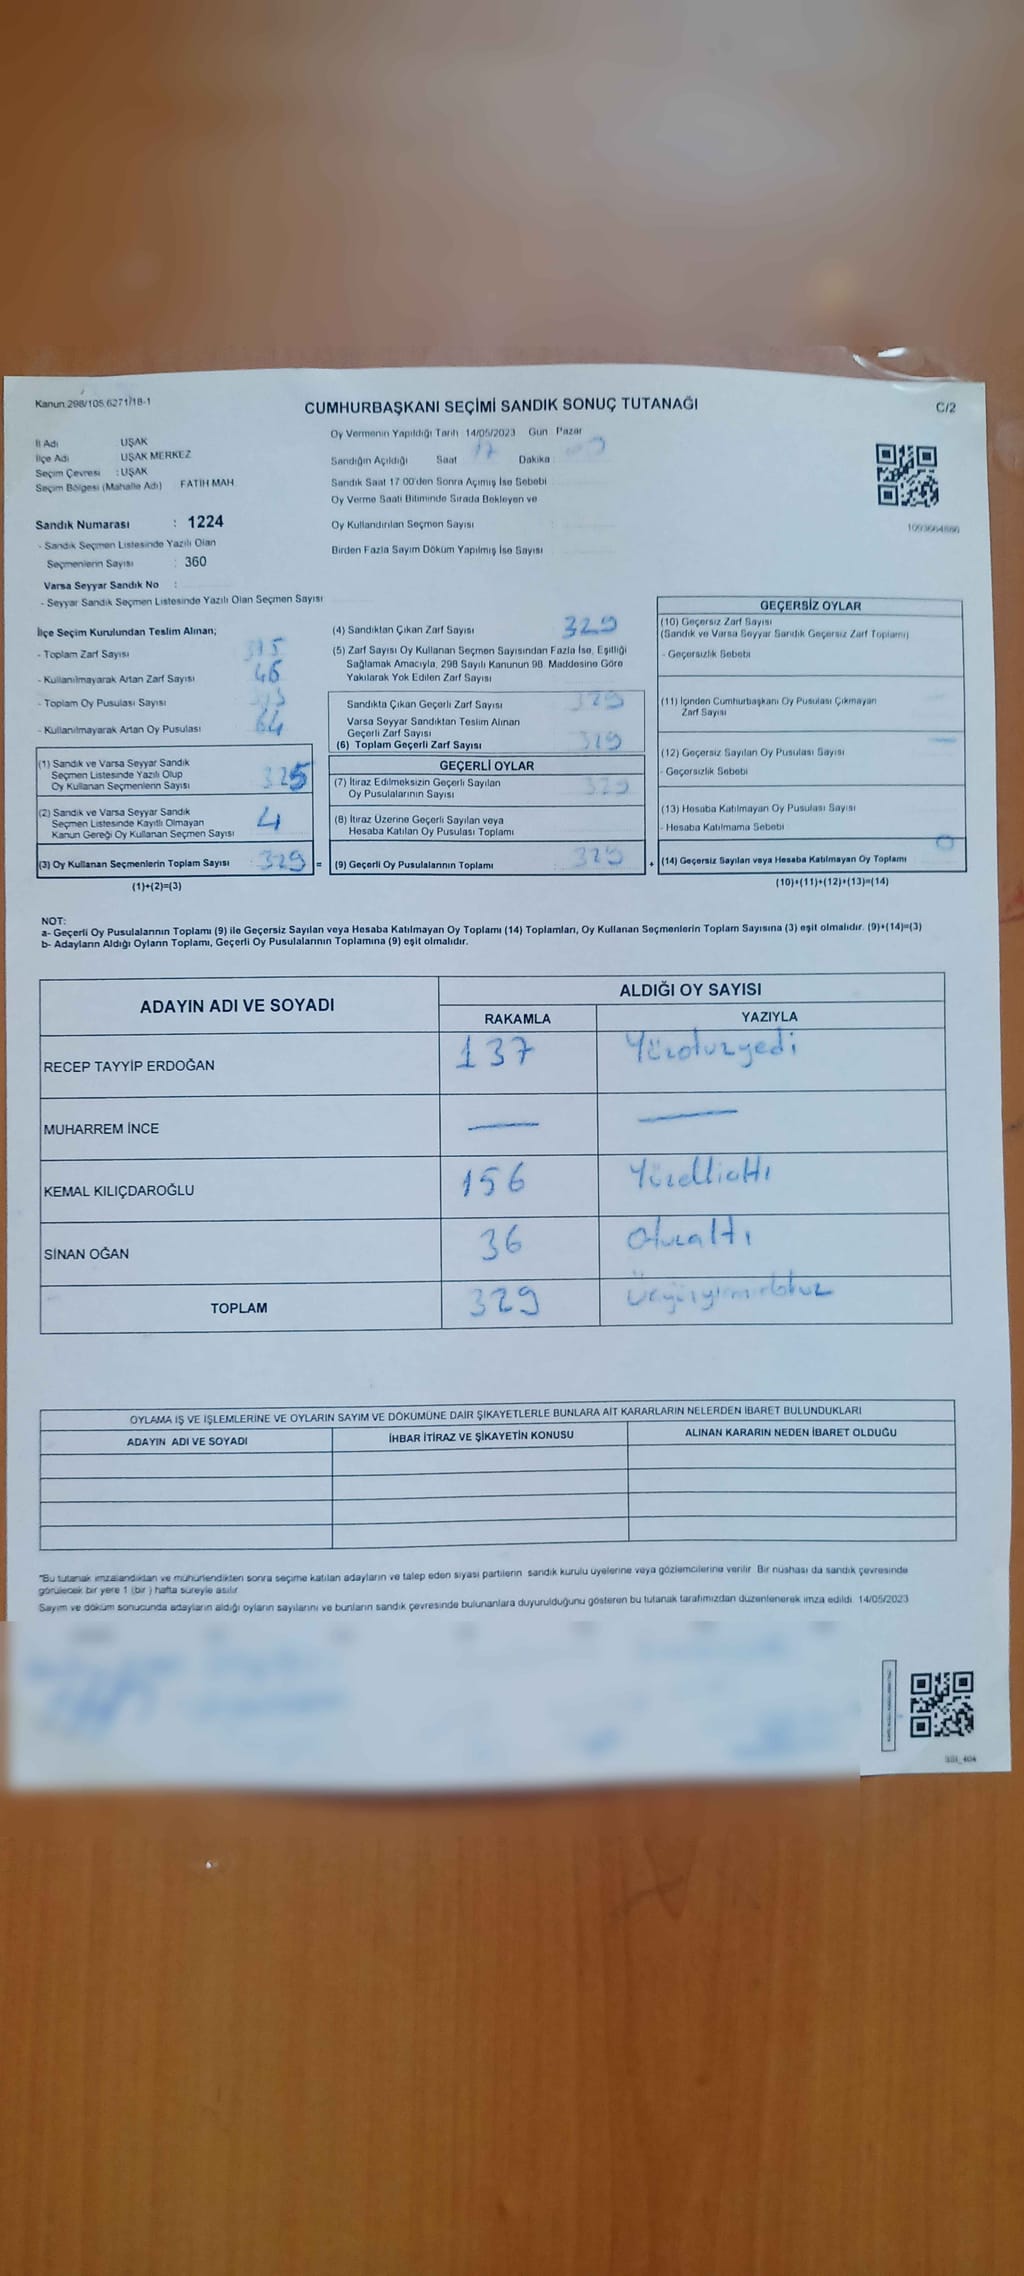 Kanun:298/105,6271/18-1
CUMHURBAŞKANI SEÇİMİ SANDIK SONUÇ TUTANAĞI
C/2
İl Adı UŞAK
İlçe Adı UŞAK MERKEZ
Seçim Çevresi : UŞAK
Seçim Bölgesi (Mahalle Adı) FATİH MAH
Sandık Numarası : 1224
- Sandık Seçmen Listesinde Yazılı Olan
Seçmenlerin Sayısı : 360
Varsa Seyyar Sandık No :
- Seyyar Sandık Seçmen Listesinde Yazılı Olan Seçmen Sayısı
Oy Vermenin Yapıldığı Tarih 14/05/2023 Gün Pazar
Sandığın Açıldığı Saat 17 Dakika :
Sandık Saat 17 00'den Sonra Açımış İse Sebebi
Oy Verme Saati Bitiminde Sırada Bekleyen ve
Oy Kullandırılan Seçmen Sayısı :
Birden Fazla Sayım Döküm Yapılmış İse Sayısı
İlçe Seçim Kurulundan Teslim Alınan;
- Toplam Zarf Sayısı
- Kullanılmayarak Artan Zarf Sayısı 46
- Toplam Oy Pusulası Sayısı
- Kullanılmayarak Artan Oy Pusulası 64
(1) Sandık ve Varsa Seyyar Sandık
Seçmen Listesinde Yazılı Olup
Oy Kullanan Seçmenlerin Sayısı 325
(2) Sandık ve Varsa Seyyar Sandık
Seçmen Listesinde Kayıtlı Olmayan
Kanun Gereği Oy Kullanan Seçmen Sayısı 4
(3) Oy Kullanan Seçmenlerin Toplam Sayısı 329 =
(1)+(2)=(3)
(4) Sandıktan Çıkan Zarf Sayısı 329
(5) Zarf Sayısı Oy Kullanan Seçmen Sayısından Fazla İse, Eşitliği
Sağlamak Amacıyla, 298 Sayılı Kanunun 98. Maddesine Göre
Yakılarak Yok Edilen Zarf Sayısı
Sandıkta Çıkan Geçerli Zarf Sayısı 329
Varsa Seyyar Sandıktan Teslim Alınan
Geçerli Zarf Sayısı
(6) Toplam Geçerli Zarf Sayısı 329
GEÇERLİ OYLAR
(7) İtiraz Edilmeksizin Geçerli Sayılan
Oy Pusulalarının Sayısı 329
(8) İtiraz Üzerine Geçerli Sayılan veya
Hesaba Katılan Oy Pusulası Toplamı
(9) Geçerli Oy Pusulalarının Toplamı 329 +
GEÇERSİZ OYLAR
(10) Geçersiz Zarf Sayısı
(Sandık ve Varsa Seyyar Sandık Geçersiz Zarf Toplamı)
- Geçersizlik Sebebi
(11) İçinden Cumhurbaşkanı Oy Pusulası Çıkmayan
Zarf Sayısı
(12) Geçersiz Sayılan Oy Pusulası Sayısı —
- Geçersizlik Sebebi
(13) Hesaba Katılmayan Oy Pusulası Sayısı
- Hesaba Katılmama Sebebi
(14) Geçersiz Sayılan veya Hesaba Katılmayan Oy Toplamı 0
(10)+(11)+(12)+(13)=(14)
NOT:
a- Geçerli Oy Pusulalarının Toplamı (9) ile Geçersiz Sayılan veya Hesaba Katılmayan Oy Toplamı (14) Toplamları, Oy Kullanan Seçmenlerin Toplam Sayısına (3) eşit olmalıdır. (9)+(14)=(3)
b- Adayların Aldığı Oyların Toplamı, Geçerli Oy Pusulalarının Toplamına (9) eşit olmalıdır.
ADAYIN ADI VE SOYADI
ALDIĞI OY SAYISI
RAKAMLA YAZIYLA
RECEP TAYYİP ERDOĞAN 137 Yüzotuzyedi
MUHARREM İNCE — —
KEMAL KILIÇDAROĞLU 156 Yüzelliatlı
SİNAN OĞAN 36 Otuzaltı
TOPLAM 329 Üçyüzyirmidokuz
OYLAMA İŞ VE İŞLEMLERİNE VE OYLARIN SAYIM VE DÖKÜMÜNE DAİR ŞİKAYETLERLE BUNLARA AİT KARARLARIN NELERDEN İBARET BULUNDUKLARI
ADAYIN ADI VE SOYADI İHBAR İTİRAZ VE ŞİKAYETİN KONUSU ALINAN KARARIN NEDEN İBARET OLDUĞU
"Bu tutanak imzalandıktan ve mühürlendikten sonra seçime katılan adayların ve talep eden siyasi partilerin sandık kurulu üyelerine veya gözlemcilerine verilir. Bir nüshası da sandık çevresinde
görülecek bir yere 1 (bir ) hafta süreyle asılır
Sayım ve döküm sonucunda adayların aldığı oyların sayılarını ve bunların sandık çevresinde bulunanlara duyurulduğunu gösteren bu tutanak tarafımızdan düzenlenerek imza edildi. 14/05/2023